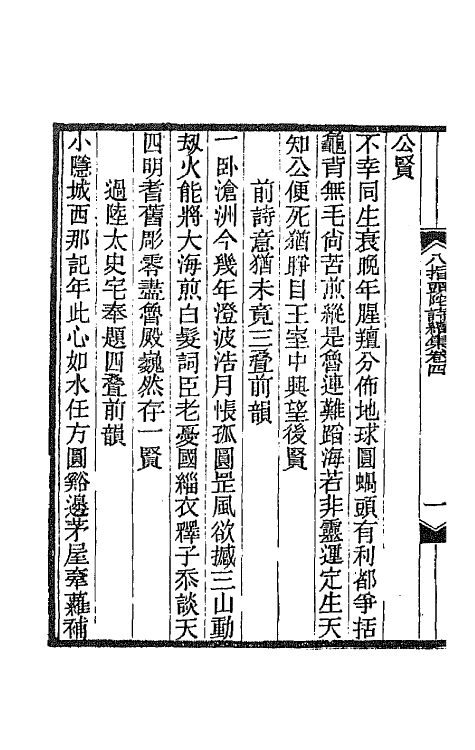 八指頭陀詩續集卷四
一
公賢
不幸同生衰晚年腥羶分佈地球圓蝸頭有利都爭括
龜背無毛尚苦煎縱是魯連難蹈海若非靈運定生天
知公便死猶睜目王室中興望後賢
前詩意猶未竟三疊前韻
一卧滄洲今幾年澄波浩月悵孤圓罡風欲撼三山動
刼火能將大海煎白髮詞臣老憂國緇衣釋子忝談天
四明耆舊彫零盡魯殿巍然存一賢
過陸太史宅奉題四疊前韻
小隱城西那記年此心如水任方圓谿邊茅屋牽蘿補